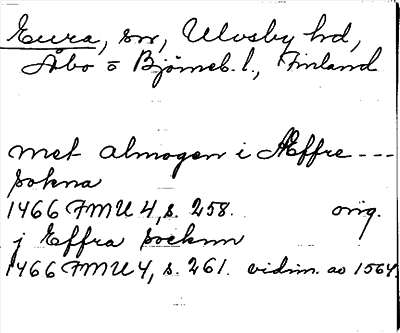 Eura, sn, Ulvsby hd,
Åbo o Björneb. l., Finland
met almogen i Æffre ---
sokna
1466 FMU 4, s. 258. orig.
j Effra socknn
1466 FMU 4, s. 261. vidim. ao 1564.